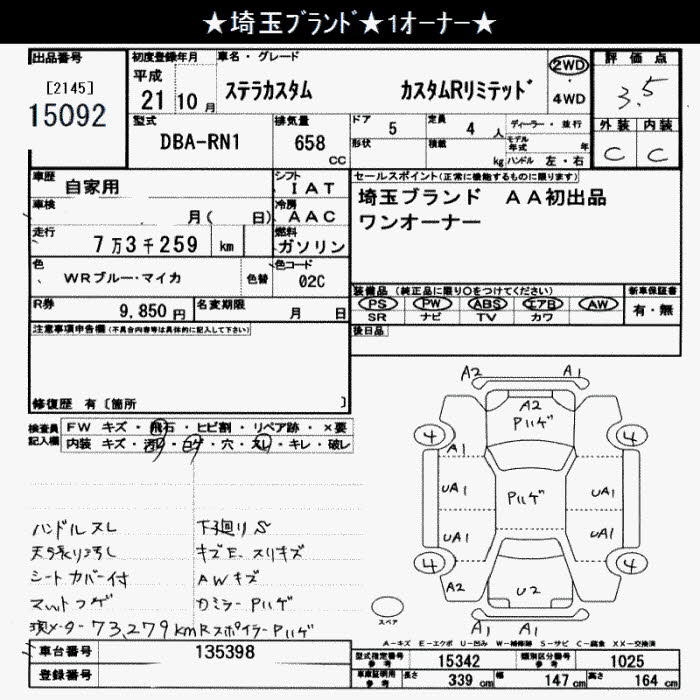 ★埼玉ﾌﾞﾗﾝﾄﾞ★1オーナー★
出品番号
[2145]
15092
初度登録年月
平成
21 10 月
車名・グレード
ステラカスタム カスタムRリミテッド
2WD
・
4WD
評価点
3.5
外装 内装
C C
型式
DBA-RN1
排気量
658
CC
ドア 5
形状
定員 4 人
積載 kg
ディーラー・並行
モデル年式 年
ハンドル 左・右
車歴 自家用
シフト IAT
車検 月( 日)
冷房 AAC
走行 7万3千259 km
燃料 ガソリン
色 WRブルー・マイカ
色替
色コード 02C
R券 9,850 円
名変期限 月 日
セールスポイント(正常に機能するものに限ります)
埼玉ブランド AA初出品
ワンオーナー
装備品 (純正品に限り○をつけてください)
PS PW ABS エアB AW
SR ナビ TV カワ
新車保証書
有・無
後日品
注意事項申告欄(不具合内容等は具体的に記入して下さい)
修復歴 有〔箇所 〕
検査員記入欄
FW キズ・飛石・ヒビ割・リペア跡・×要
内装 キズ・汚レ・コゲ・穴・スレ・キレ・破レ
ハンドルスレ 下廻りS
天張り汚レ キズE、スリキズ
シートカバー付 AWキズ
マットコゲ カミラーPハゲ
現メーター73,279km RスポイラーPハゲ
A2 A1
A2
Pハゲ
4 4
A1
UA1 Pハゲ UA1
UA1 UA1
4 4
A2 U2
A1 A1
スペア
A－キズ E－エクボ U－凹み W－補修跡 S－サビ C－腐食 XX－交換済
車台番号 135398
登録番号
型式指定番号 参考 15342
類別区分番号 参考 1025
車庫証明用 参考 長さ 339 cm 幅 147 cm 高さ 164 cm